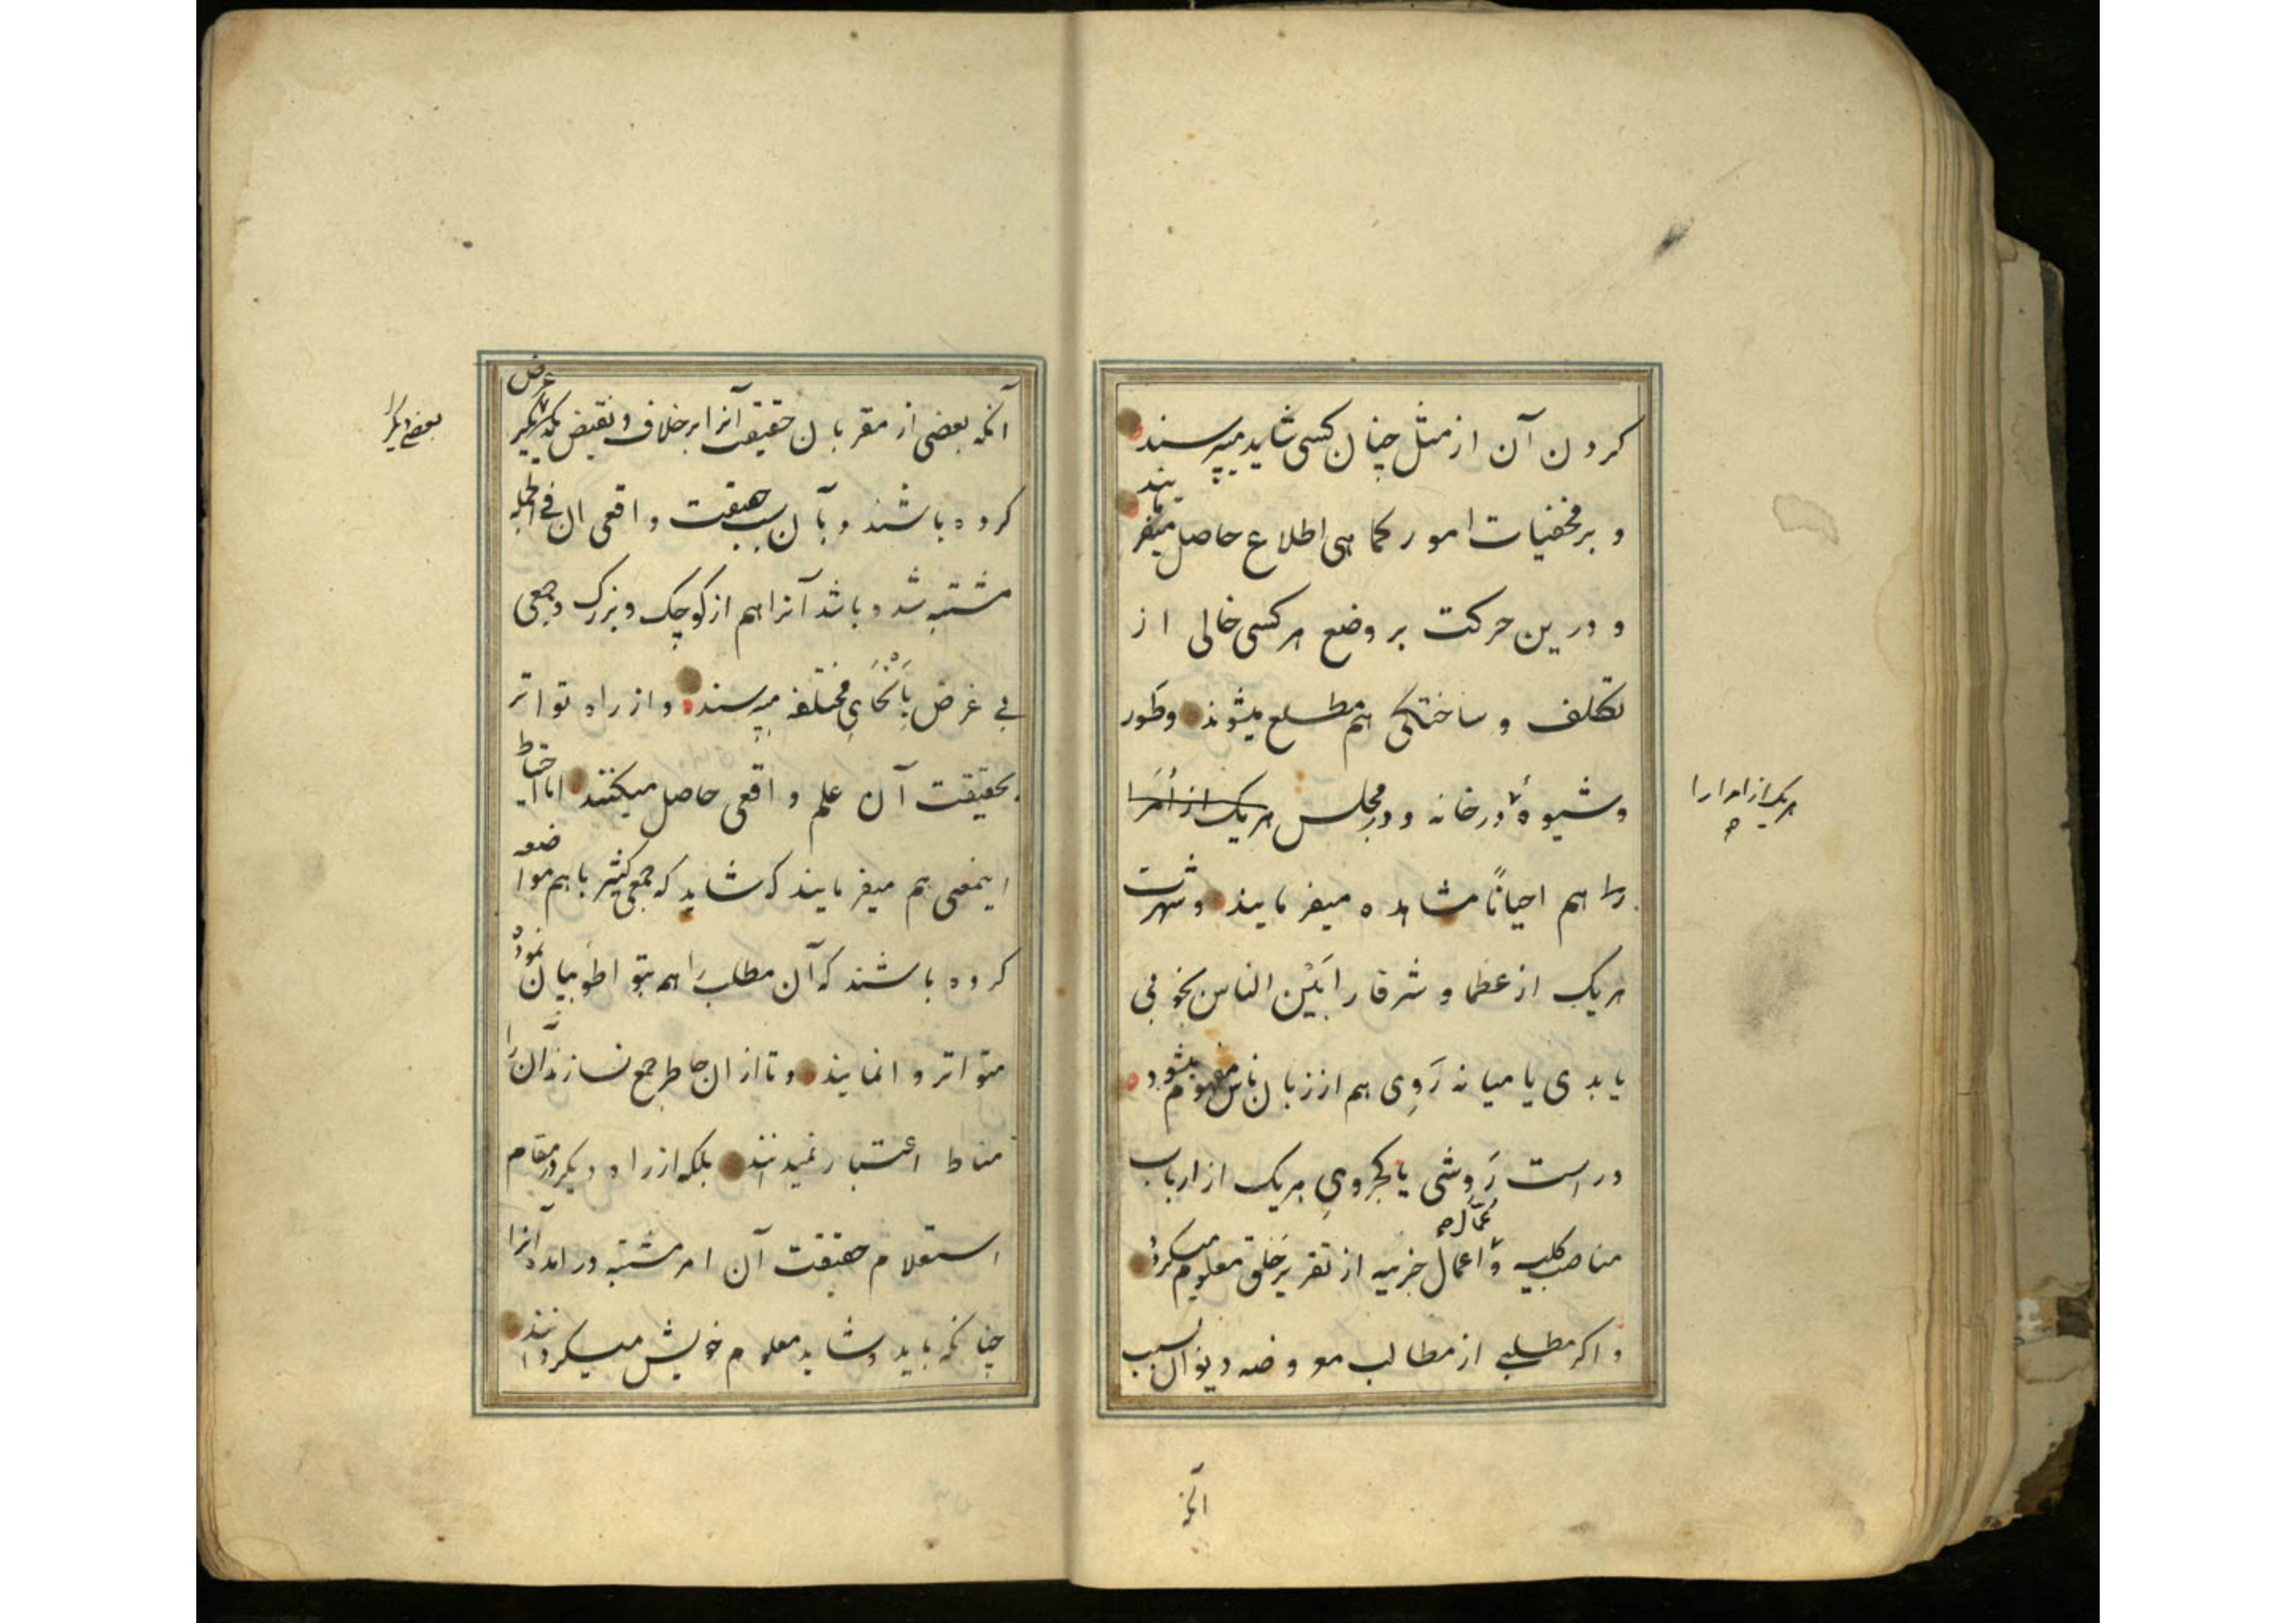 کردن آن از مثل چنان کسی شاید میپرسند
و بر مخفیات امور کما هی اطلاع حاصل میفرمایند
و درین حرکت بر وضع هر کسی خالی از
تکلف و ساختگی هم مطلع میشوند و طور
و شیوهٔ در خانه و در مجلس هر یک از اُمَرا
هر یک از امرا را
را هم احیاناً مشاهده میفرمایند و شهرت
هر یک از عظما و شرفا را بَیْنَ الناس بخوبی
یا بدی یا میانه رَوِی هم از زبان ناس مفهوم میشود
و راست رَوِشی یا کجروی هر یک از ارباب
مناصب کلیه و اعمال جزییه از تقریر خلق معلوم میکردد
عُمّال
و اکر مطلبی از مطالب معروضه دیوان بسبب
آنکه
آنکه بعضی از مقربان حقیقت آنرا بر خلاف و نقیض یکدیکر عرض
بعضی دیکر
کرده باشند و بآن سبب حقیقت واقعی ان فی الجمله
مشتبه شده باشد آنرا هم از کوچک و بزرک و جمعی
بی غرض بِاَنْحَایِ مختلفه میپرسند و از راه تواتر
بحقیقت آن علم واقعی حاصل میکنند اما احتیاط
اینمعنی هم میفرمایند که شاید که جمعی کثیر با هم مواضعه
کرده باشند که آن مطلب را هم بتواطؤ بیان نموده
متواتر وانمایند و تا از ان خاطر جمع نسازند آن را
مناط اعتبار نمیدانند بلکه از راه دیکر در مقام
استعلام حقیقت آن امر مشتبه درآمده آنرا
چنانکه باید و شاید معلوم خویش میکردانند